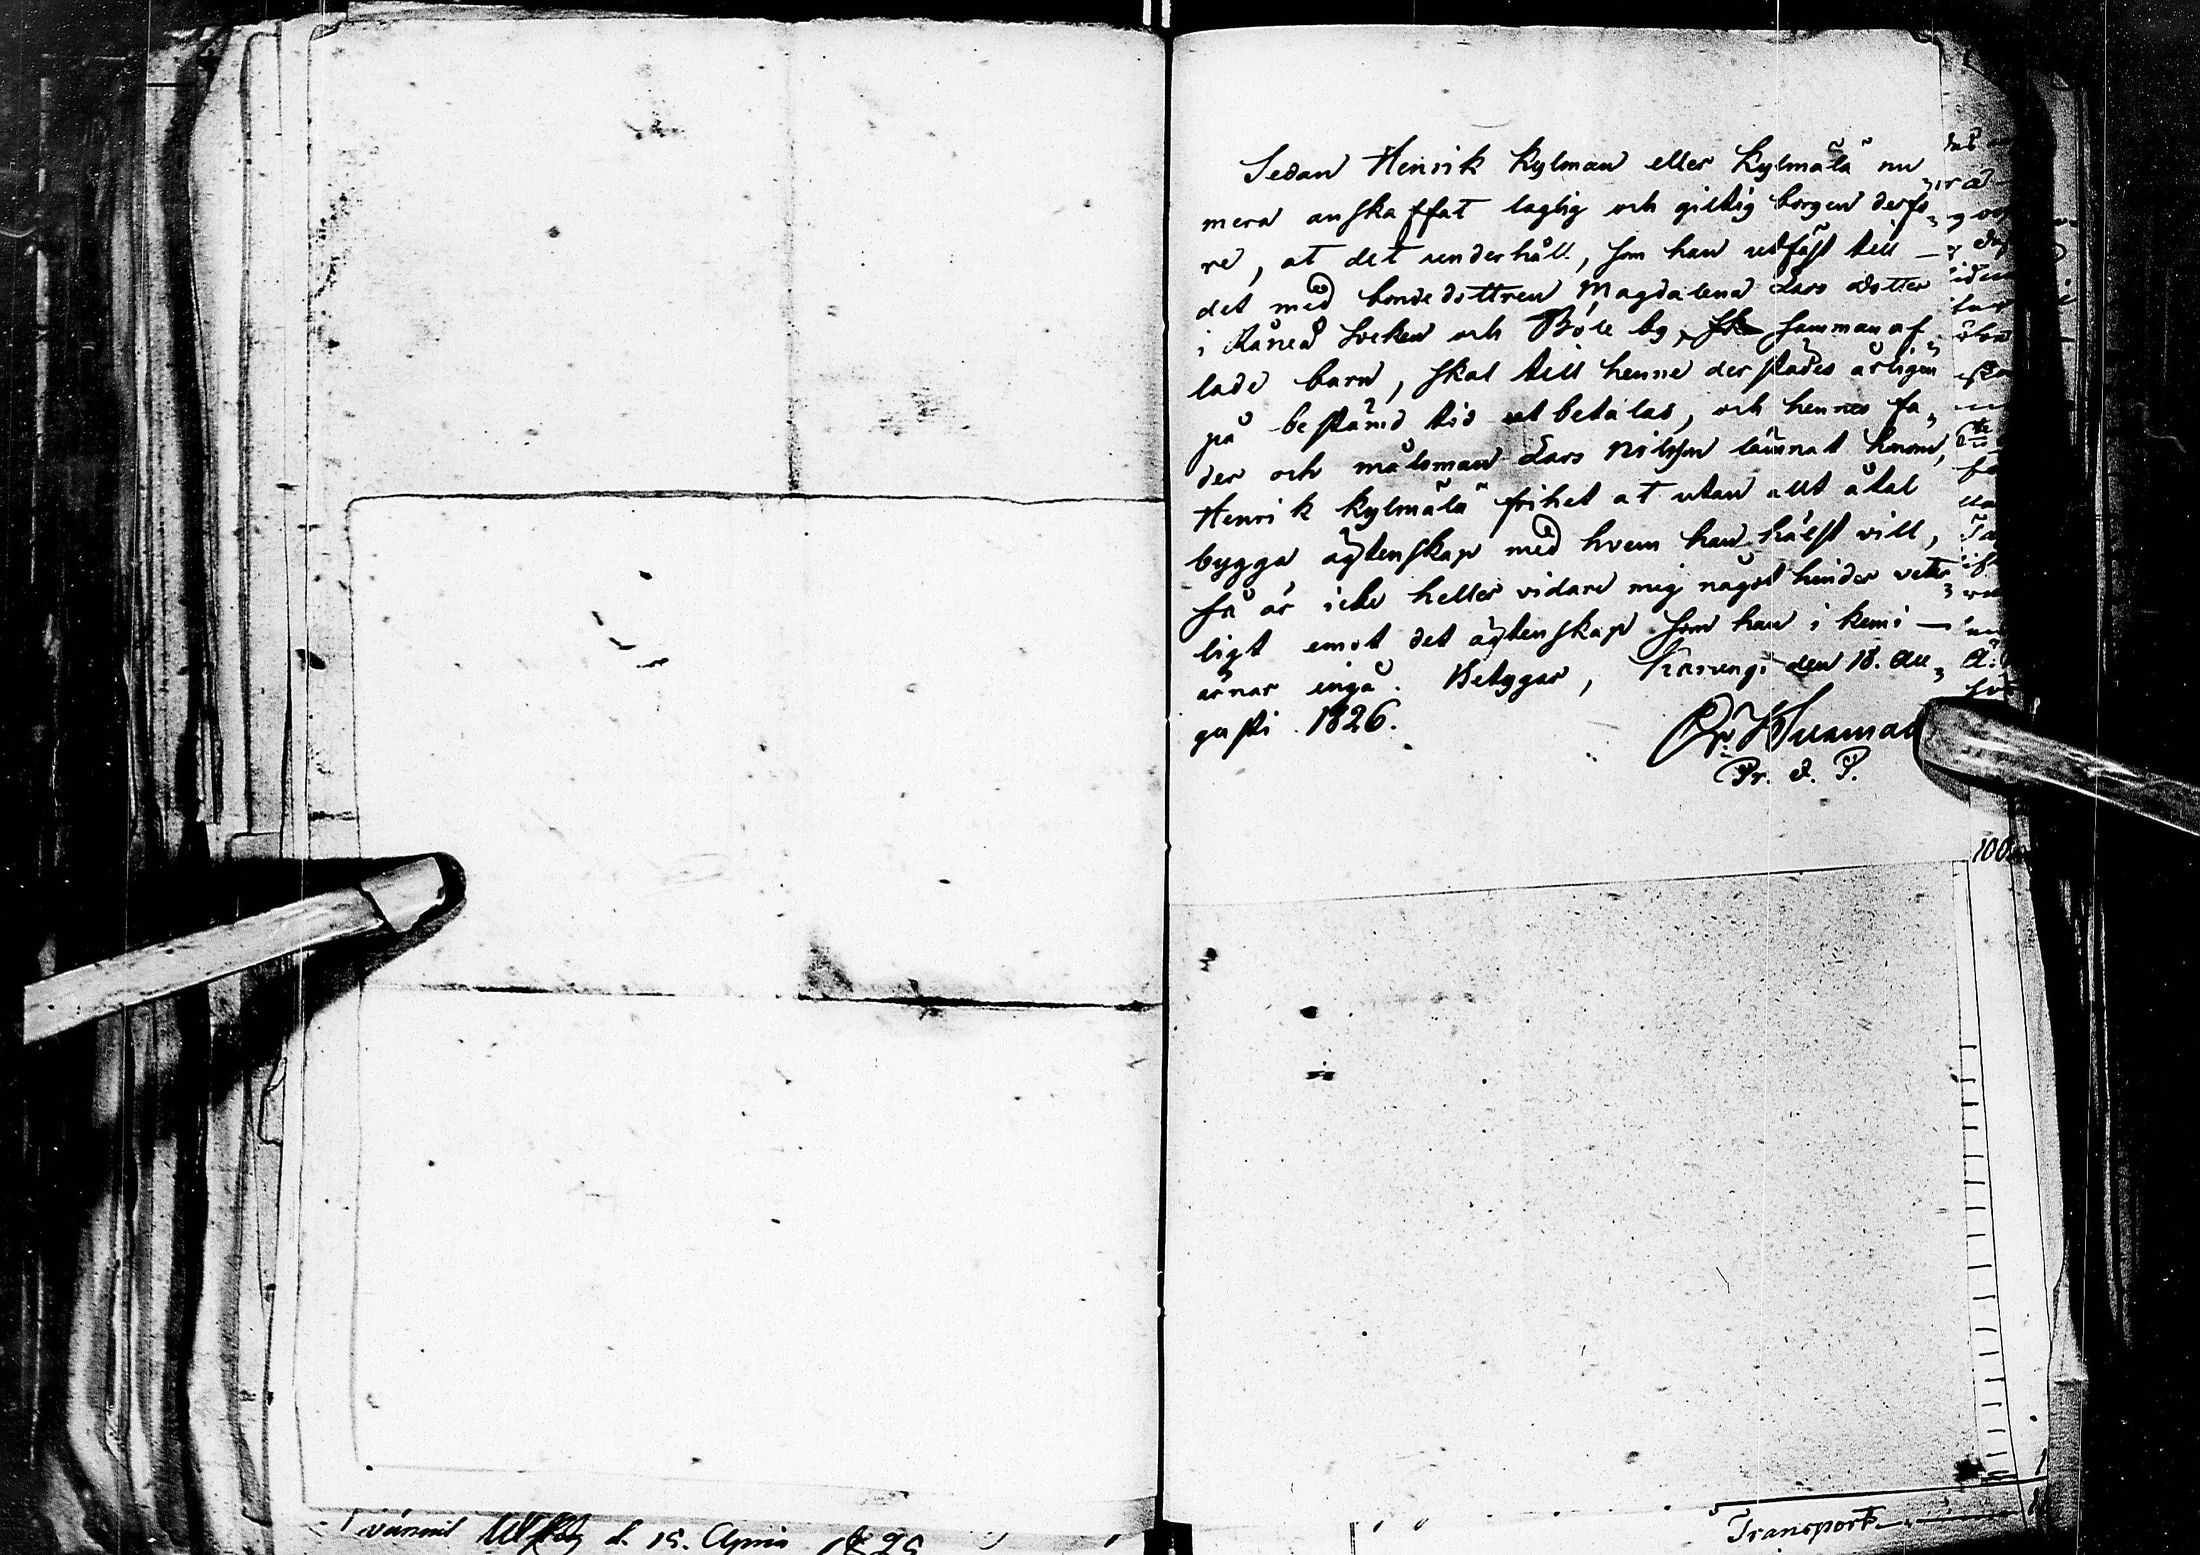 Sedan Henrik Kylman eller Kylmälä nu
mera anskaffat laglig och giltig borgen derfö„
re, at det underhåll, som han utfäst till —
det med bondedottren Magdalena Lars dotter
i Råneå Socken och Böle by, samman af„
lade barn, skal till henne derstädes årligen
på bestämd tid utbetalas, och hennes fa„
der och målsman Lars Nilsson lämnat honom,
Henrik Kylmälä frihet at utan allt åtal
bygga ägtenskap med hvem han hälst vill,
så är icke heller vidare mig något hinder veter„
ligt emot det ägtenskap som han i Kemi —
ärnar ingå. Betygar, Karungi den 18. Au„
gusti 1826.
Pr. V. P.
100
d. 15. April 1825
Transport